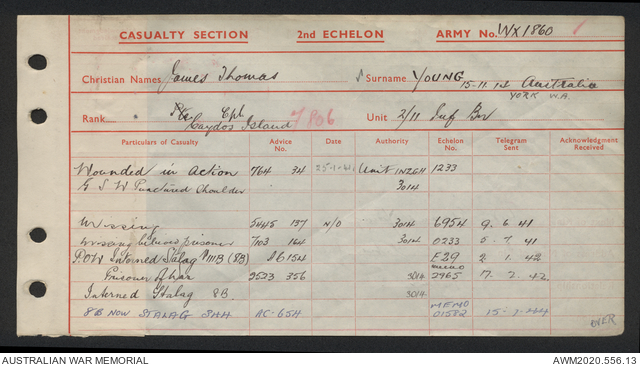 CASUALTY SECTION 2nd ECHELON ARMY No. WX1860
Christian Names James Thomas Surname YOUNG 15-11-14 Australia
YORK W.A.
Rank Cpl 7806 Unit 2/11 Inf Bn
Island
Particulars of Casualty Advice No. Date Authority Echelon No. Telegram Sent Acknowledgment Received
Wounded in action 764 34 25-1-41 Unit INZGH 1233
G S W Punctured Shoulder 3014
Missing 5445 137 N/D 3014 6954 9. 6 41
Missing believed prisoner 7103 164 3014 0233 5. 7. 41
P.O.W Interned Stalag VIIIB (8B) 154 E29 2. 1. 42
Prisoner of war 2523 356 3014 memo 2965 17. 2. 42
Interned Stalag 8B 3014
8B NOW STALAG 344 AC. 654 MEMO 01582 15-7-44
OVER
AUSTRALIAN WAR MEMORIAL AWM2020.556.13